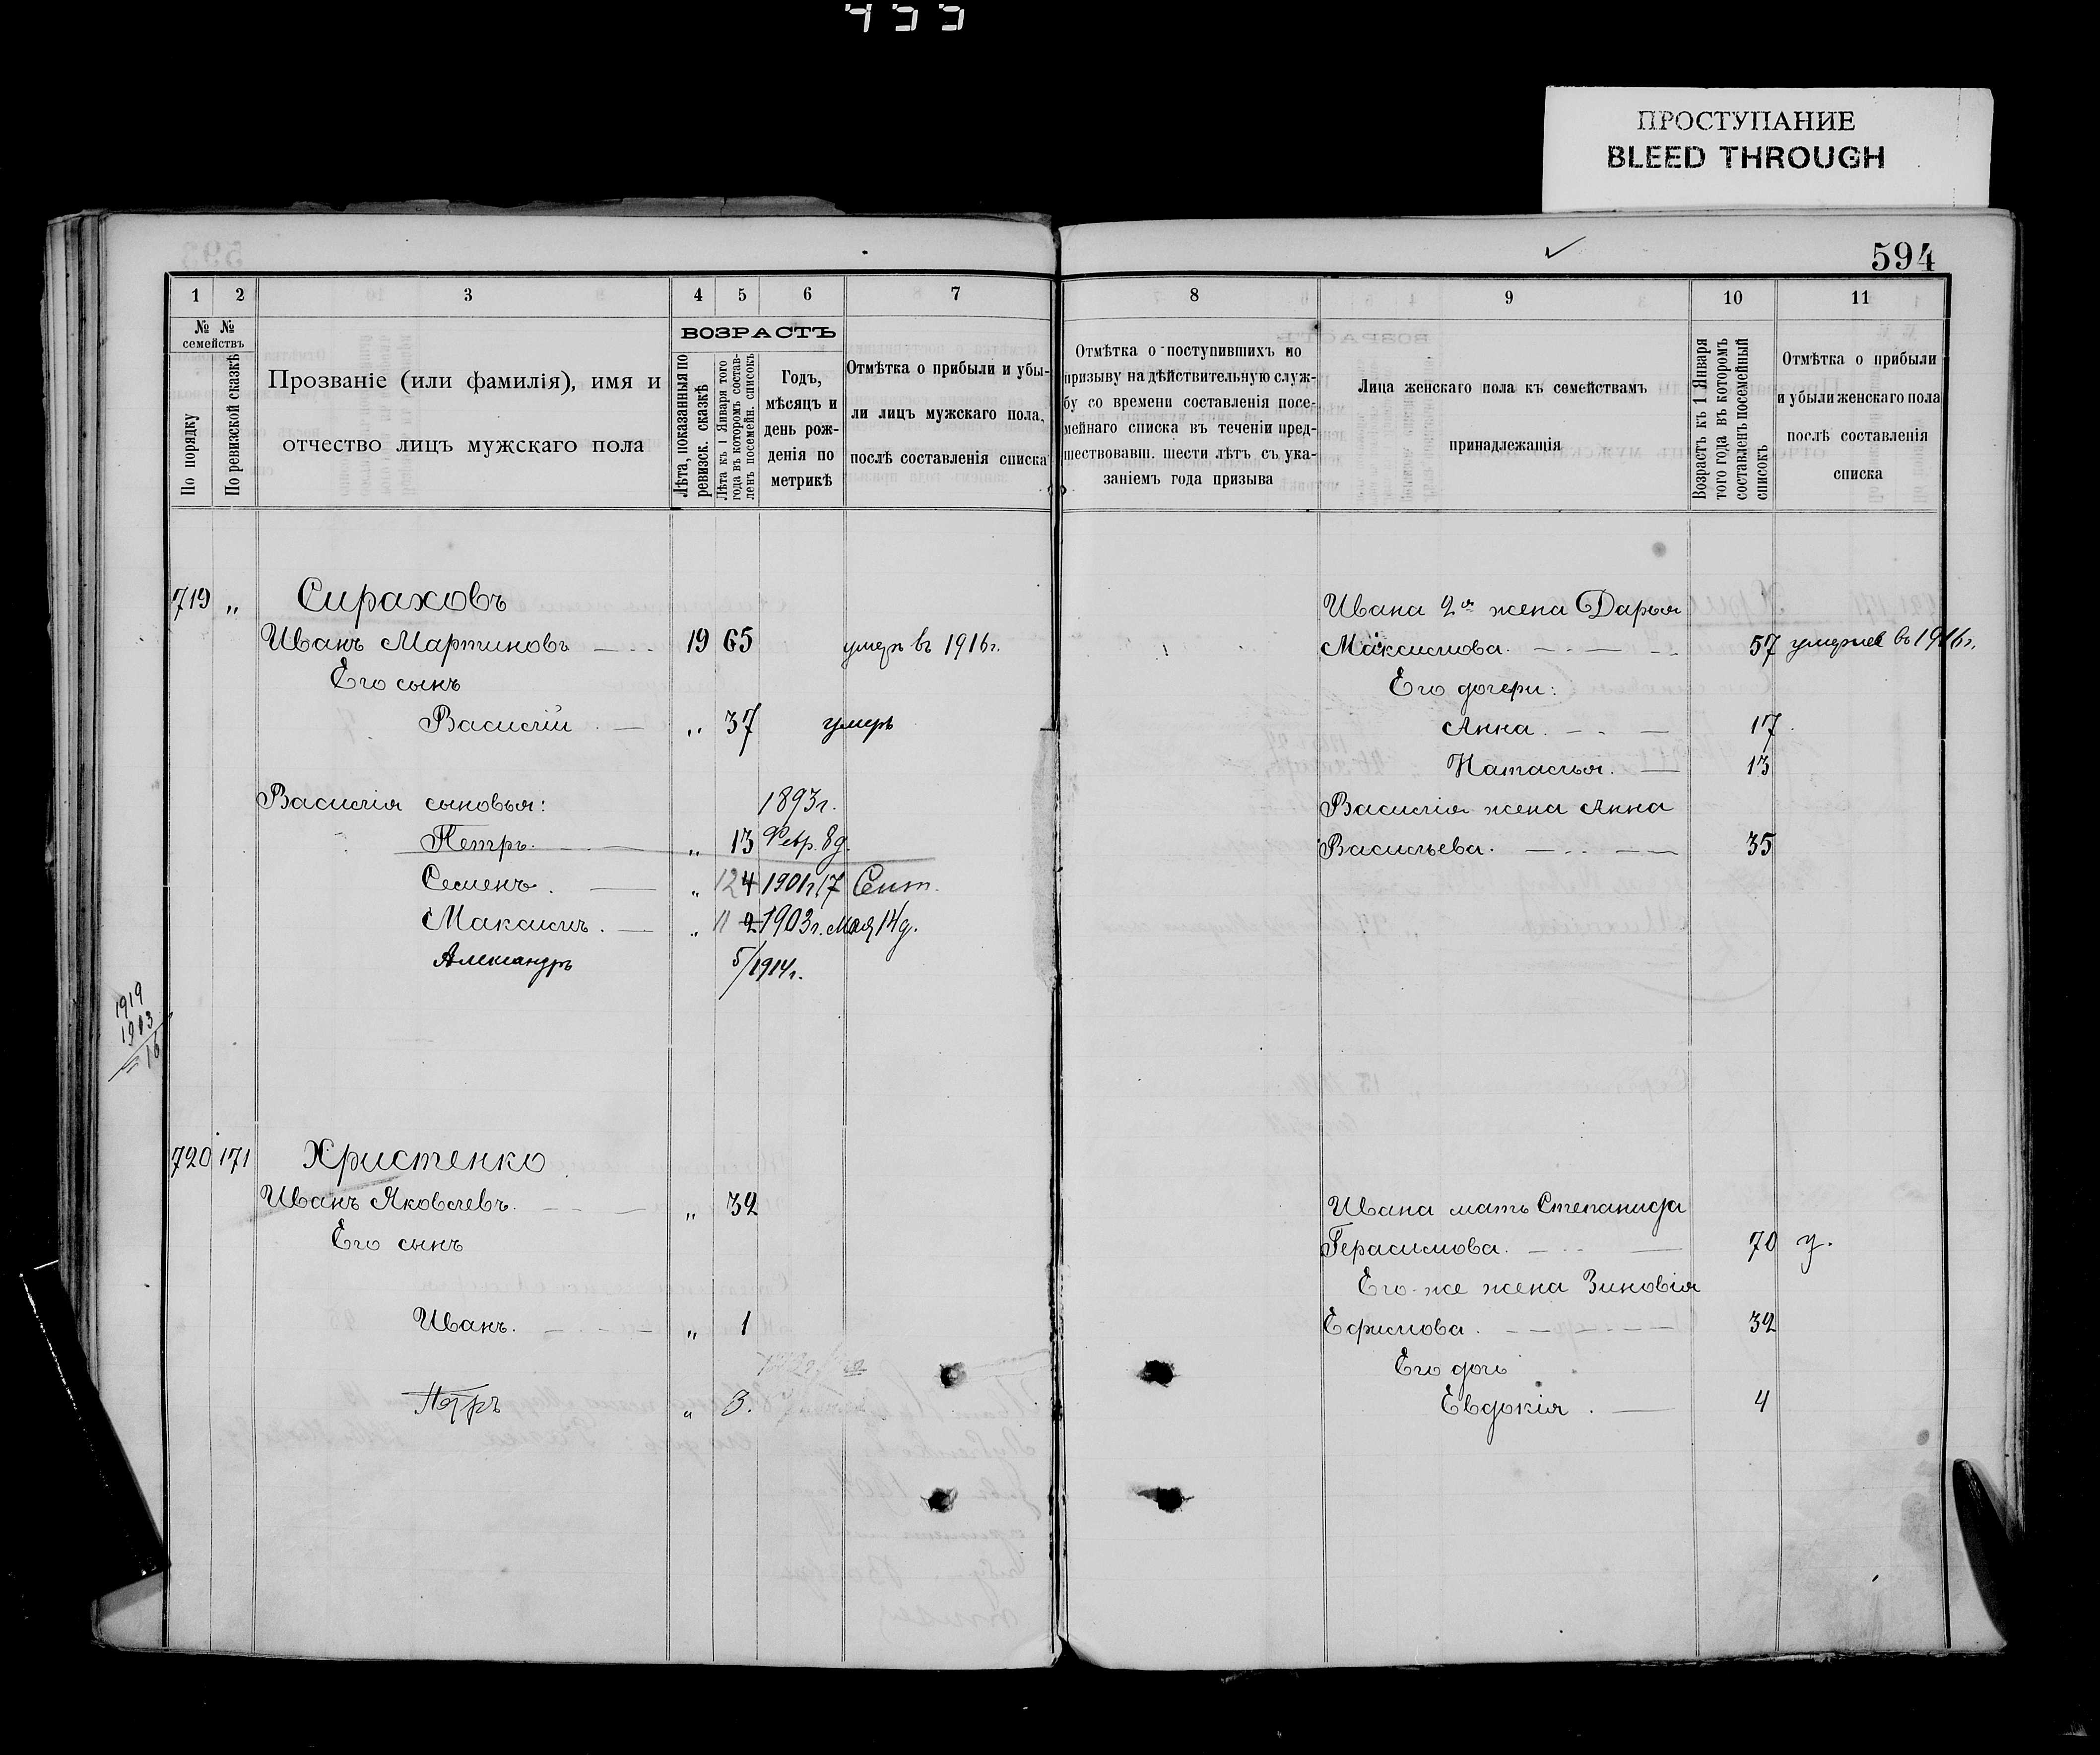 ПРОСТУПАНИЕ
BLEED THROUGH
594
1 2 3 4 5 6 7
№ № семействъ
По порядку
По ревизской сказкѣ
Прозваніе (или фамилія), имя и
отчество лицъ мужскаго пола
ВОЗРАСТЪ
Лѣта, показанныя по
ревизск. сказкѣ
Лѣта къ 1 Января того
года въ которомъ состав-
ленъ посемейн. списокъ
Годъ,
мѣсяцъ и
день рож-
денія по
метрикѣ
Отмѣтка о прибыли и убы-
ли лицъ мужскаго пола,
послѣ составленія списка
719 „ Сираховъ
Иванъ Мартиновъ 19 65 умеръ въ 1916г.
Его сынъ
Василій „ 37 умеръ
Василія сыновья: 1893г.
Петръ. „ 13 Февр. 8д.
Семенъ. „ 12 4 1901г 17 Сент.
Максимъ. „ 11 2 1903г. Мая 14д.
Александръ 5/1914г.
1919
1903
16
720 171 Христенко
Иванъ Яковлевъ. „ 32
Его сынъ
Иванъ. „ 1
Петръ „ 3.
8 9 10 11
Отмѣтка о поступившихъ по
призыву на дѣйствительную служ-
бу со времени составленія посе-
мейнаго списка въ теченіи пред-
шествовавш. шести лѣтъ съ ука-
заніемъ года призыва
Лица женскаго пола къ семействамъ
принадлежащія
Возрастъ къ 1 Января
того года въ которомъ
составленъ посемейный
списокъ
Отмѣтка о прибыли
и убыли женскаго пола
послѣ составленія
списка
Ивана 2я жена Дарья
Максимова. 57 умерла въ 1916г.
Его дочери:
Анна. 17
Наталья. 13
Василія жена Анна
Васильева. 35
Ивана мать Степанида
Герасимова. 70 у.
Его-же жена Зиновія
Ефимова. 32
Его дочь
Евдокія. 4